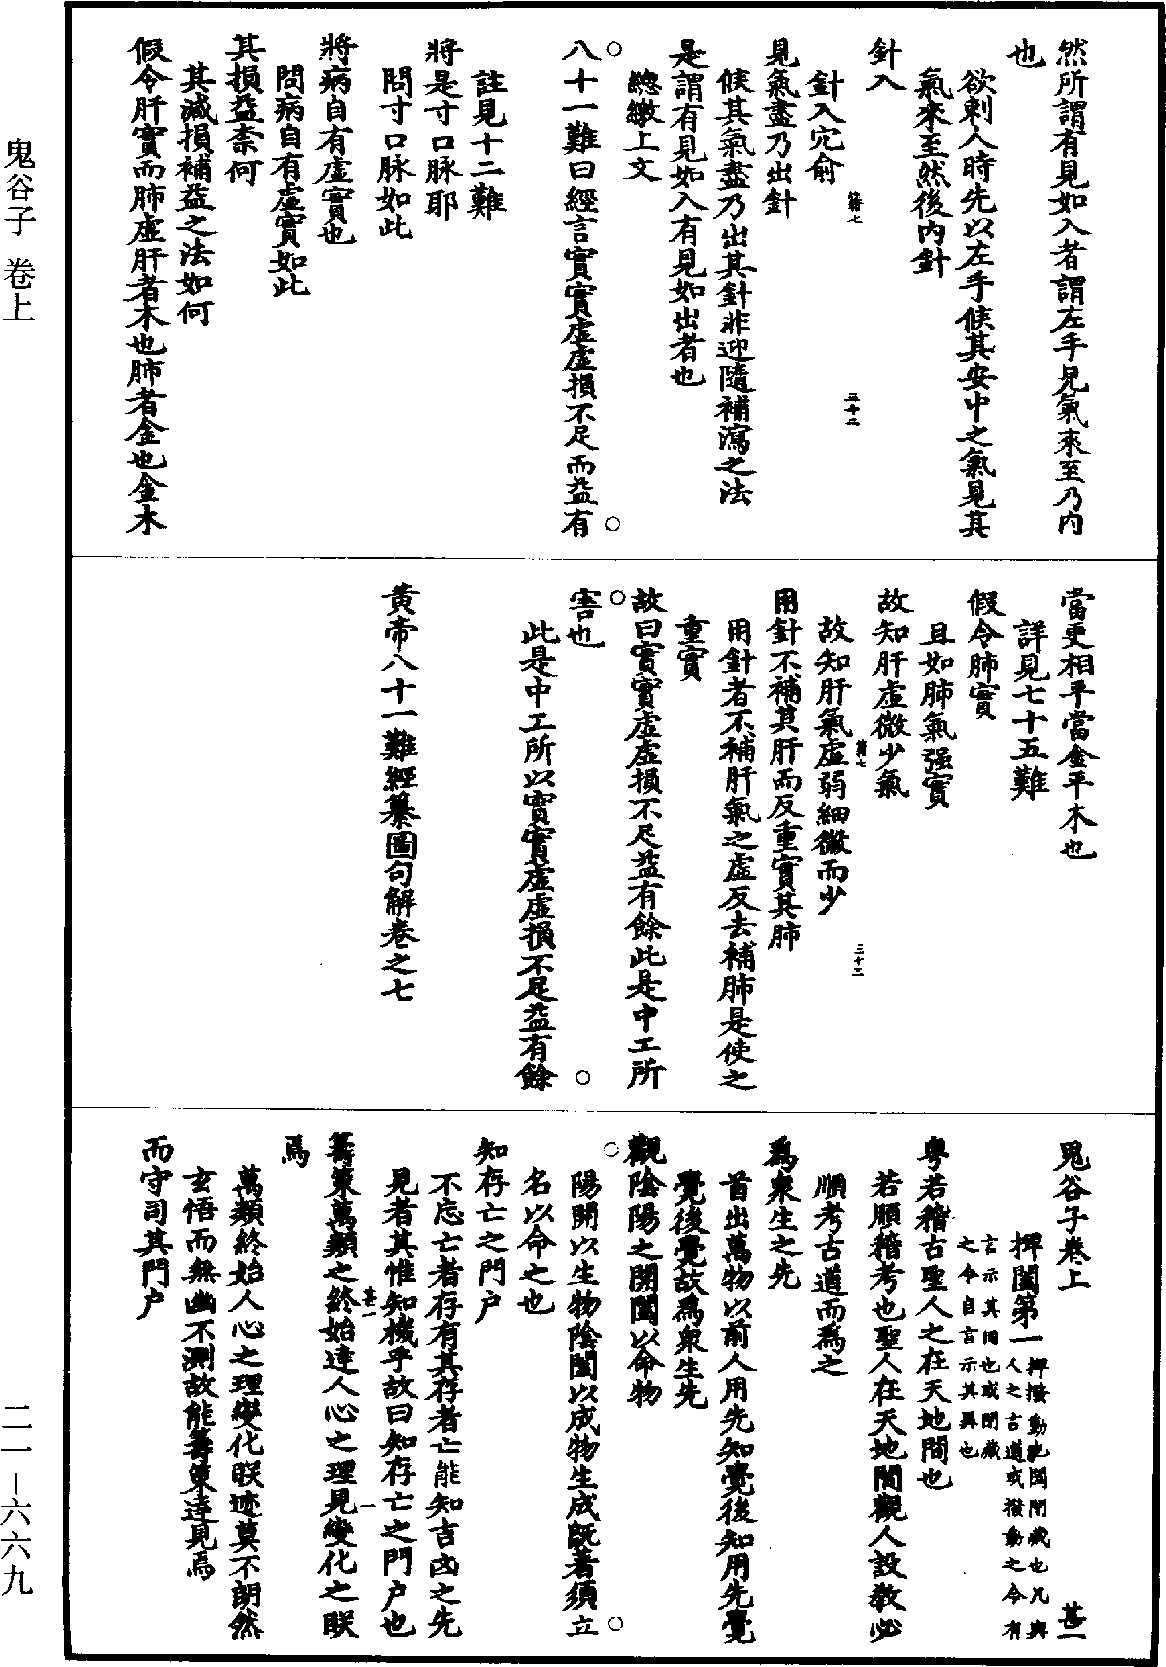 然所謂有見如入者謂左手見氣來至乃內
也
欲刺人時先以左手候其安中之氣見其
氣來至然後內針
針入
針入穴俞
見氣盡乃出針
候其氣盡乃出其針非迎隨補瀉之法
是謂有見如入有見如出者也
總繳上文
○
○
八十一難曰經言實實虛虛損不足而益有
註見十二難
將是寸口脉耶
問寸口脉如此
將病自有虛實也
問病自有虛實如此
其損益柰何
其減損補益之法如何
假令肝實而肺虛肝者木也肺者金也金木
當更相平當金平木也
詳見七十五難
假令肺實
且如肺氣强實
故知肝虛微少氣
故知肝氣虛弱細微而少
用針不補其肝而反重實其肺
用針者不補肝氣之虛反去補肺是使之
重實
故曰實實虛虛損不足益有餘此是中工所
○
○
害也
此是中工所以實實虛虛損不足益有餘
黃帝八十一難經纂圖句解卷之七
鬼谷子卷上
甚一
捭闔第一捭撥動也闔閉藏也凡與
人之言道或撥動之令有
言示其同也或閉藏
之令自言示其異也
粤若稽古聖人之在天地間也
若順稽考也聖人在天地間觀人設教必
順考古道而爲之
爲衆生之先
首出萬物以前人用先知覺後知用先覺
覺後覺故爲衆生先
觀陰陽之開闔以命物
○
○
陽開以生物陰闔以成物生成旣著須立
名以命之也
知存亡之門户
不忘亡者存有其存者亡能知吉凶之先
見者其惟知機乎故曰知存亡之門户也
籌策萬類之終始達人心之理見變化之眹
焉
萬類終始人心之理變化眹迹莫不朗然
玄悟而無幽不測故能籌策達見焉
而守司其門户
鬼谷子 卷上
二一－六六九